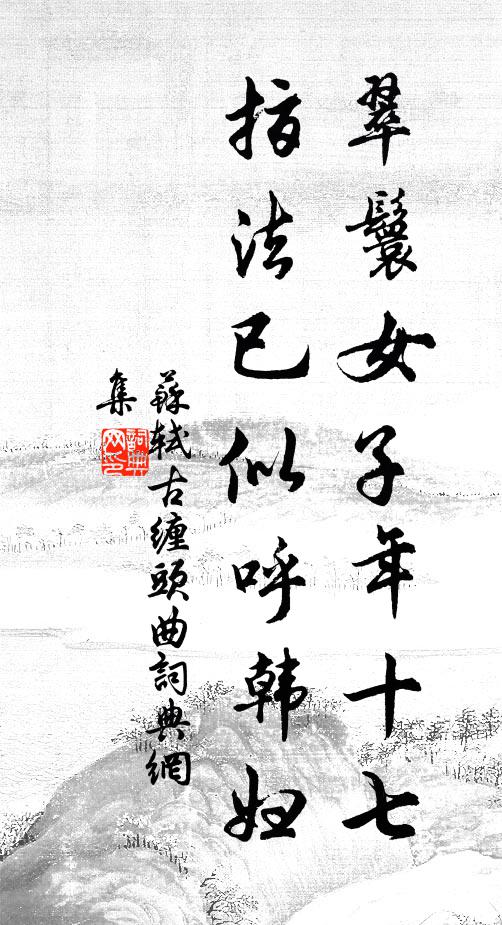 翠鬟女子年十七
指法已似呼韓婦
蘇軾古纏頭曲詞典網
集
詞典网印